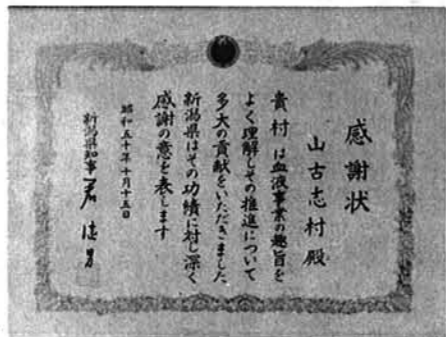 感謝状
山古志村殿
貴村は血液事業の趣旨を
よく理解しその推進について
多大の貢献をいただきました
新潟県はその功績に対し深く
感謝の意を表します
昭和五十年十月十五日
新潟県知事 君健男